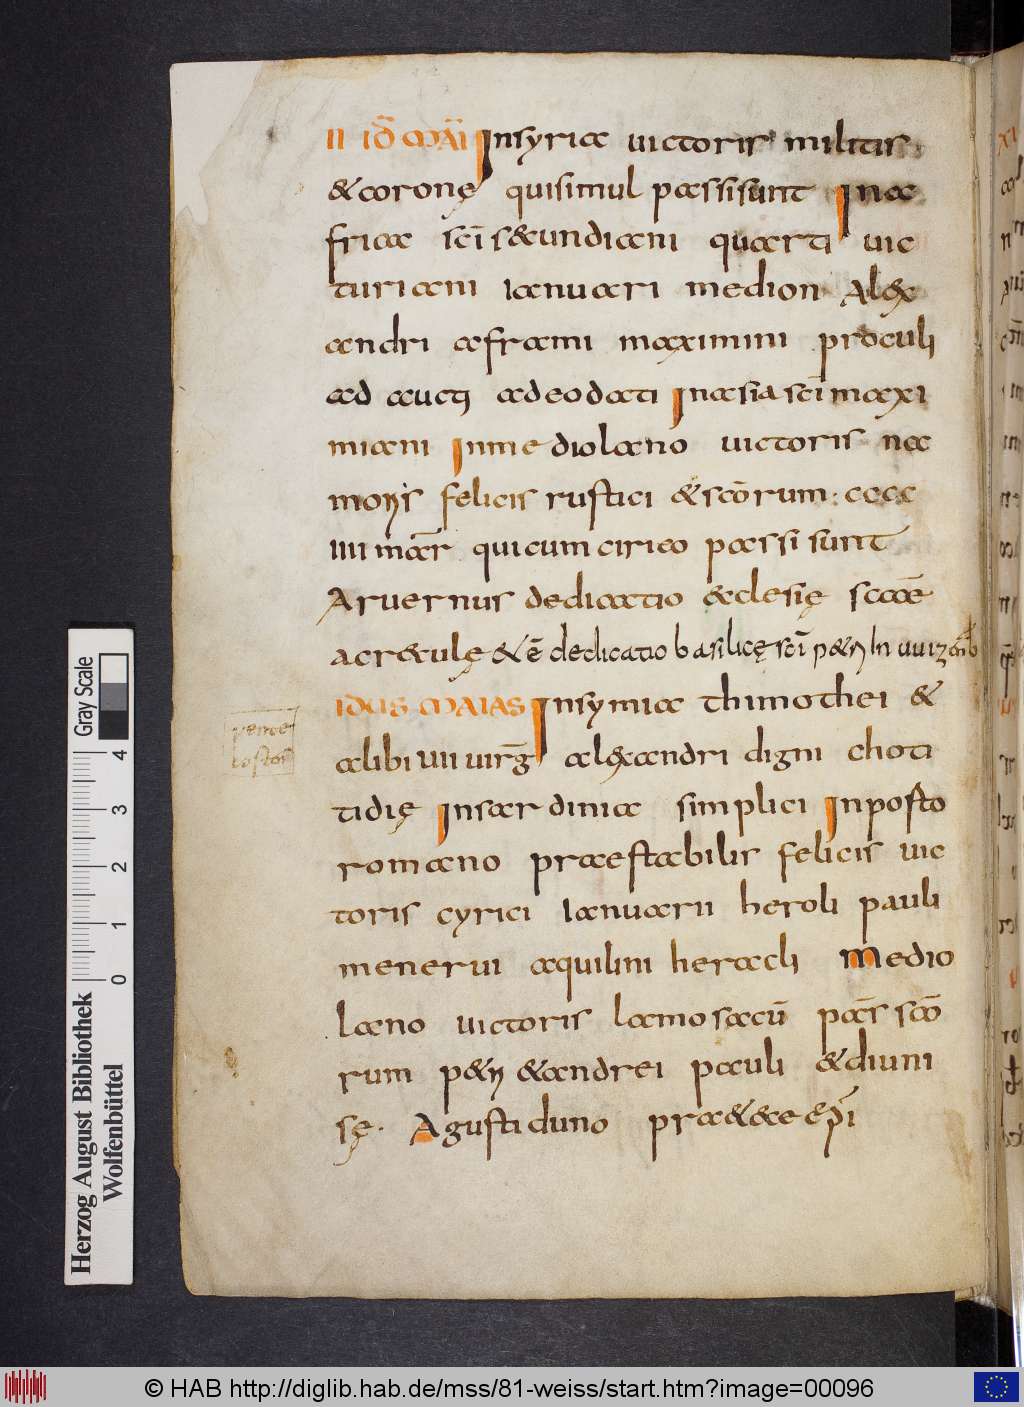 II ID̄ MAI Insyria uictoris militis
& coronę qui simul passi sunt Ina
frica sc̄i s&undiani quarti uic
turiani Ianuari medion Alex
andri aframi maximini proculi
ad aucti adeodati Inasia sc̄i maxi
miani Inmediolano uictoris na
moris felicis rustici & sc̄orum: cccc
IIII mar̄ qui cum cirico passi sunt
Aruernus dedicatio &clesię
acr&ulę & ē dedicatio basilicę sc̄i p&ri In
IDUS MAIAS Insymia thimothei &
alibi uii uirḡ alexandri digni choti
tidię Insardinia simplici Inposto
romano praestabilis felicis uic
toris cyrici Ianuarii heroli pauli
menerui aquilini heracli Medio
lano uictoris lamosacū pas̄ sc̄o
rum p&ri &andrei pauli & diuni
sę. Agustiduno
Gray Scale
4
3
2
1
0
Herzog August Bibliothek
Wolfenbüttel
© HAB http://diglib.hab.de/mss/81-weiss/start.htm?image=00096